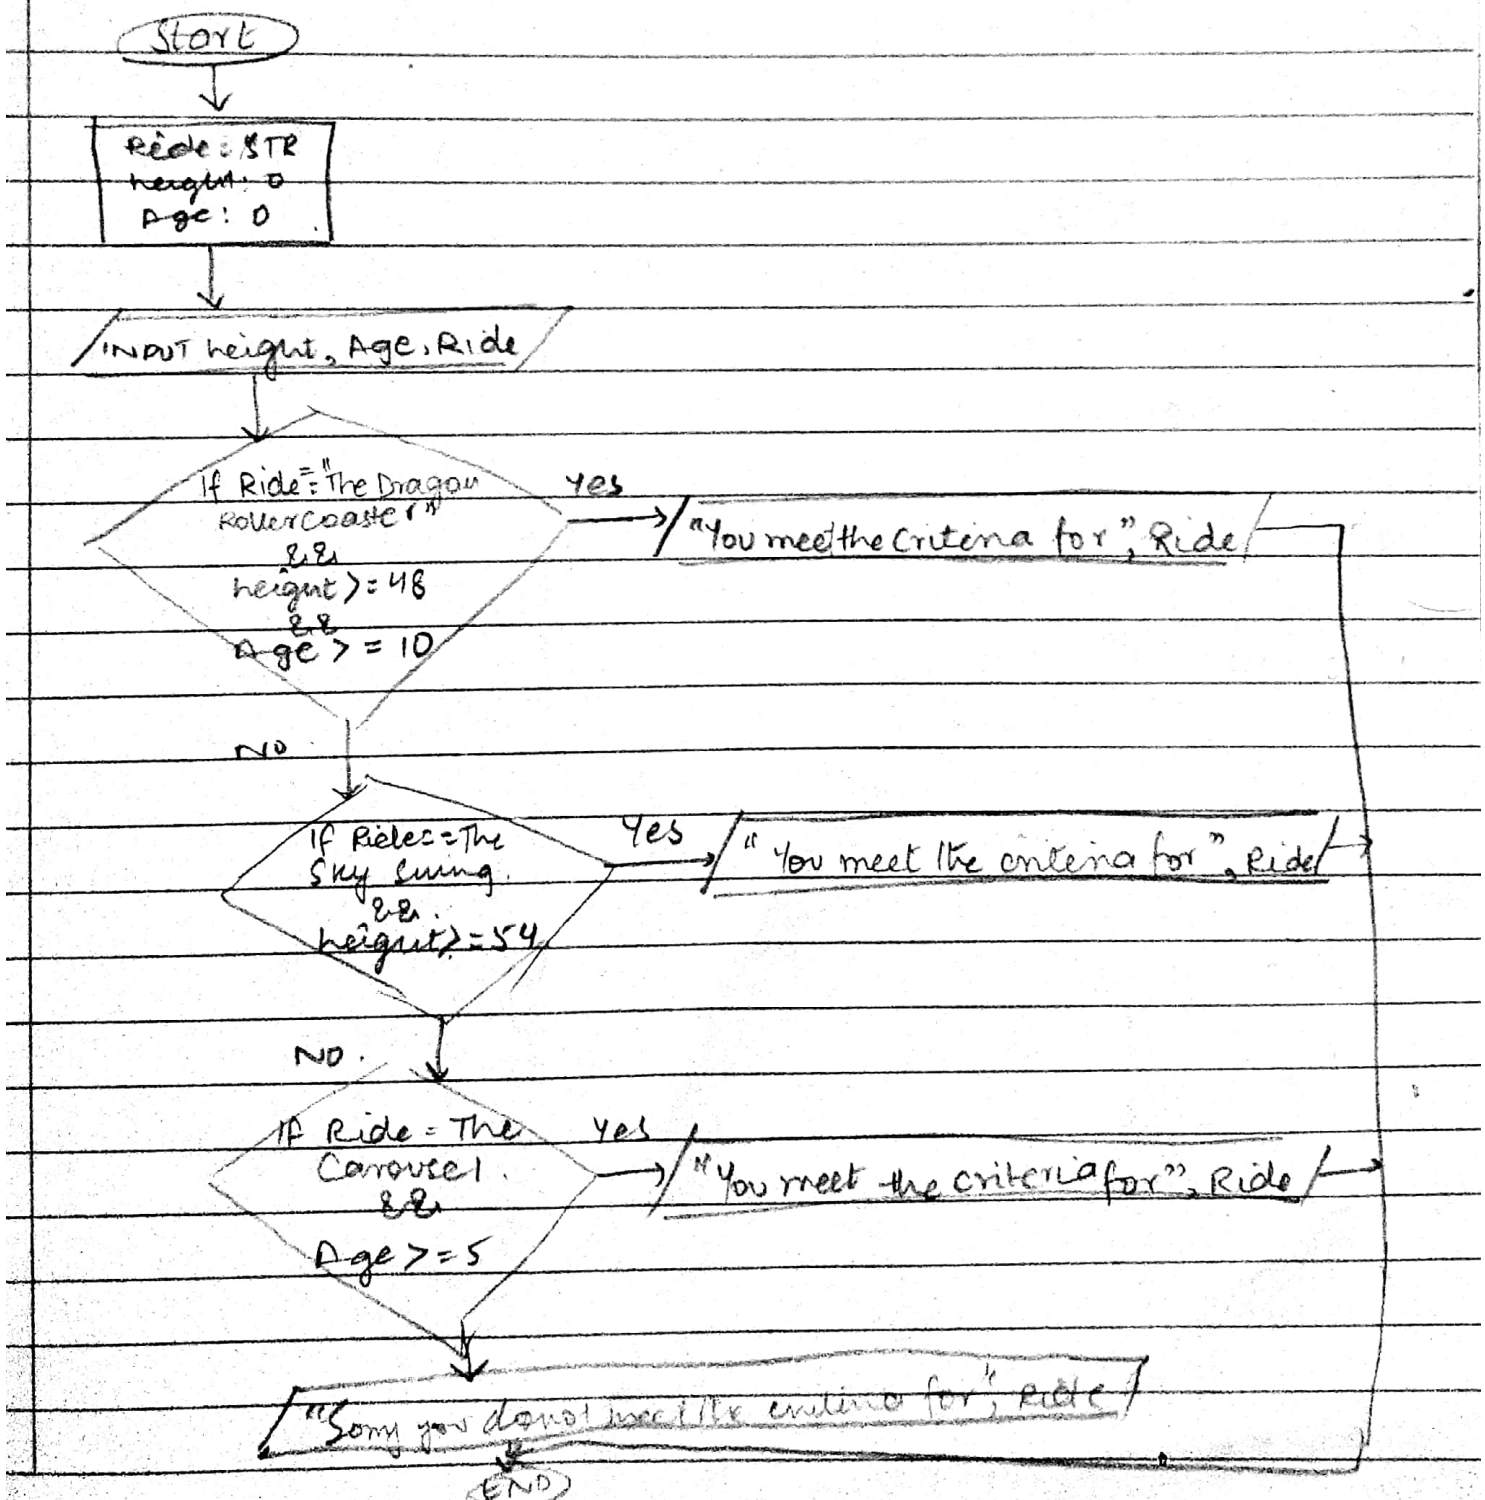 Start
Ride: STR
height: 0
Age: 0
INPUT height, Age, Ride
If Ride=="The Dragon
Rollercoaster"
&&
height>=48
&&
Age>=10
Yes
"You meet the Criteria for", Ride
NO
If Ride==The
Sky Swing.
&&.
height>=54
Yes
"You meet the criteria for", Ride
NO.
If Ride=The
Carousel.
&&
Age>=5
Yes
"You meet the criteria for", Ride
"Sorry you donot meet the criteria for", Ride
END